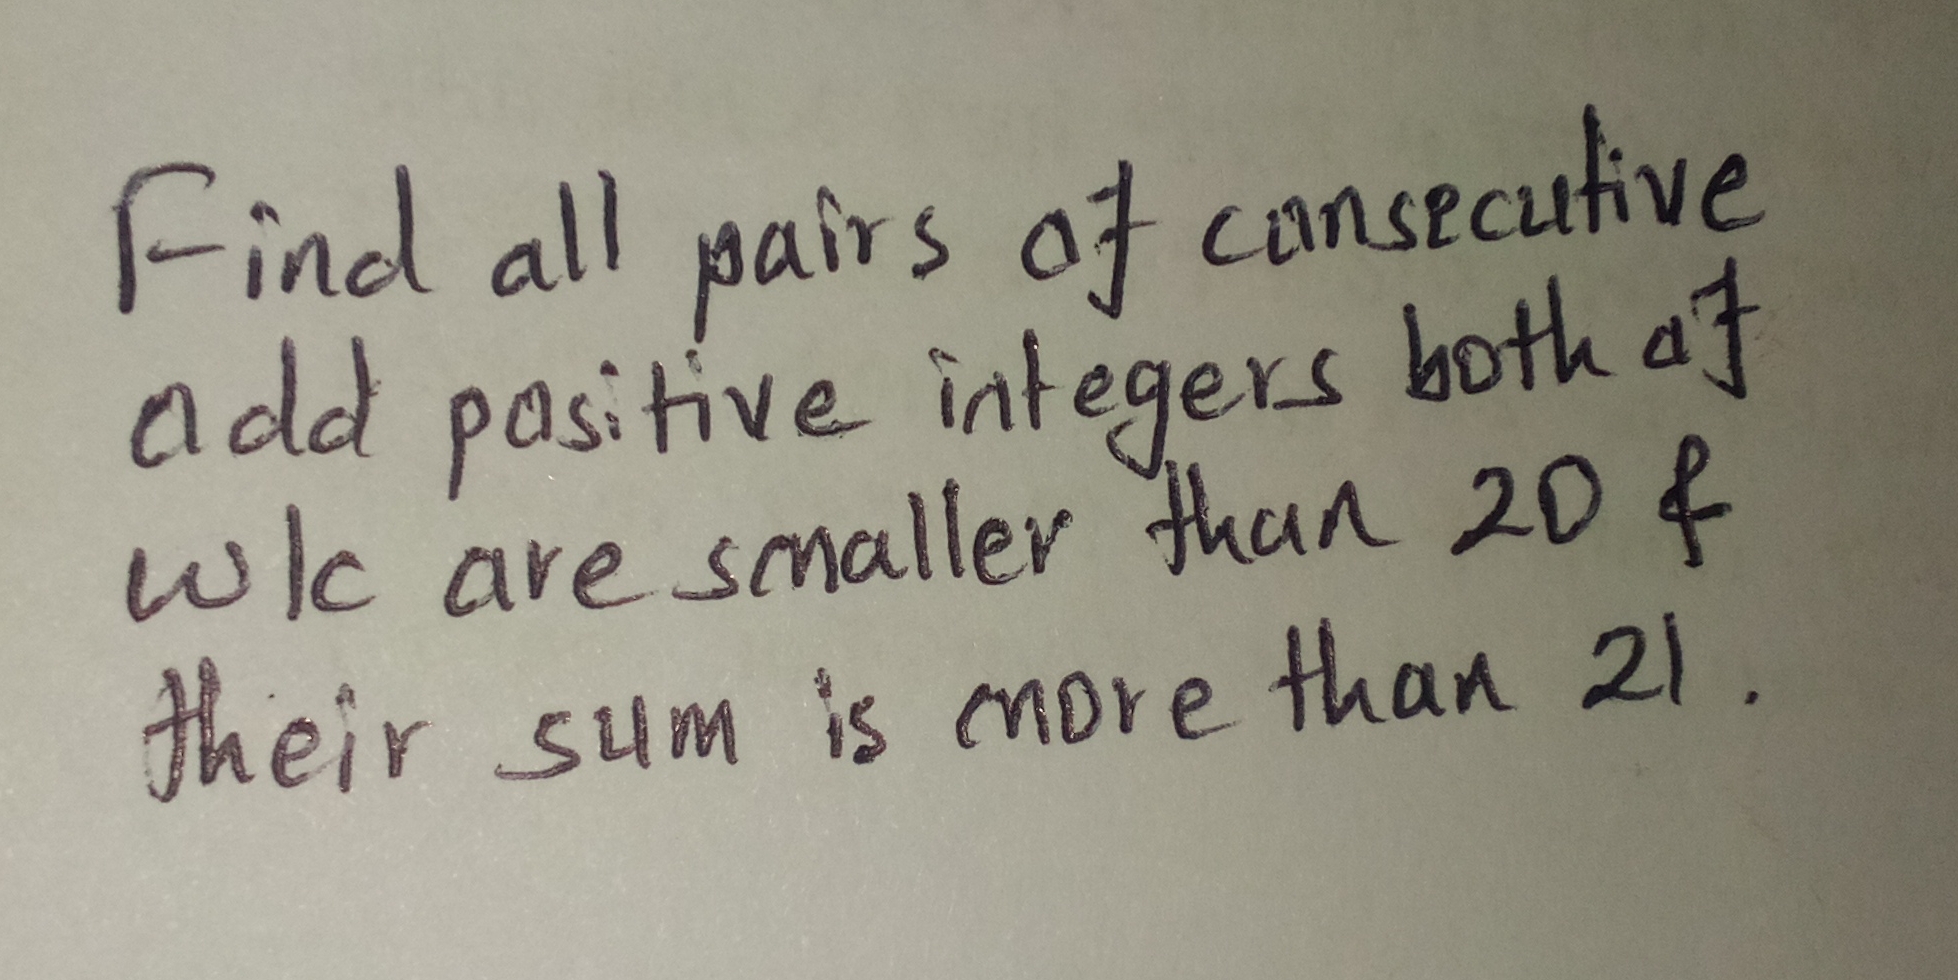 Find all pairs of consecutive
odd positive integers both of
w/c are smaller than 20 &
their sum is more than 21.